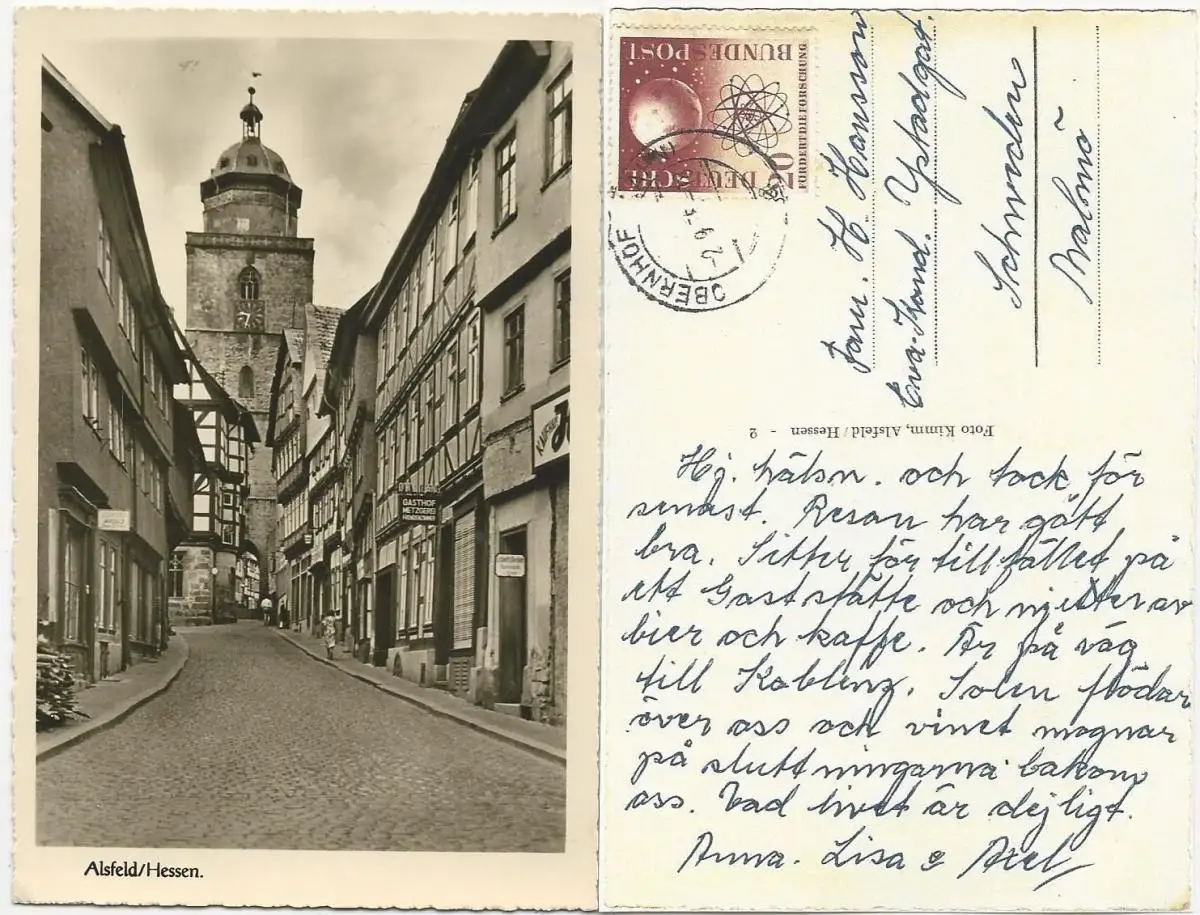 GASTHOF
METZGEREI
Alsfeld/Hessen.
DEUTSCHE
BUNDESPOST
10
FÖRDERT DIE FORSCHUNG
OBERNHOF
Fam. H Hansson
Eva-Strand. Ystadgat.
Schweden
Malmö
Foto Kimm, Alsfeld/Hessen - 2
Hj. hälsn. och tack för
senast. Resan har gått
bra. Sitter för tillfället på
ett Gaststätte och njuter av
bier och kaffe. Är på väg
till Koblenz. Solen flödar
över oss och vinet mognar
på sluttningarna bakom
oss. Vad livet är dejligt.
Anna-Lisa & Axel